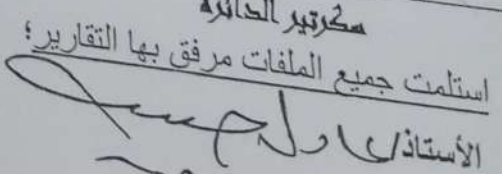 سكرتير الدائرة
استلمت جميع الملفات مرفق بها التقارير؛
الأستاذ/ عادل حسن